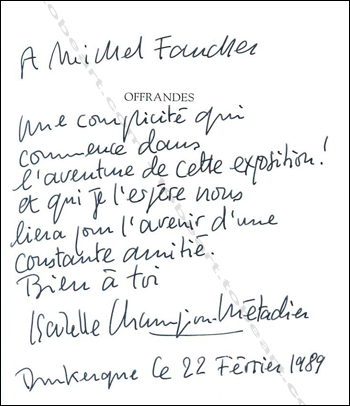 A Michel Faucher
OFFRANDES
Une complicité qui
commence dans
l'aventure de cette exposition!
et qui je l'espère nous
liera pour l'avenir d'une
constante amitié.
Bien à toi
Isabelle Champion-Métadier
Dunkerque le 22 Février 1989